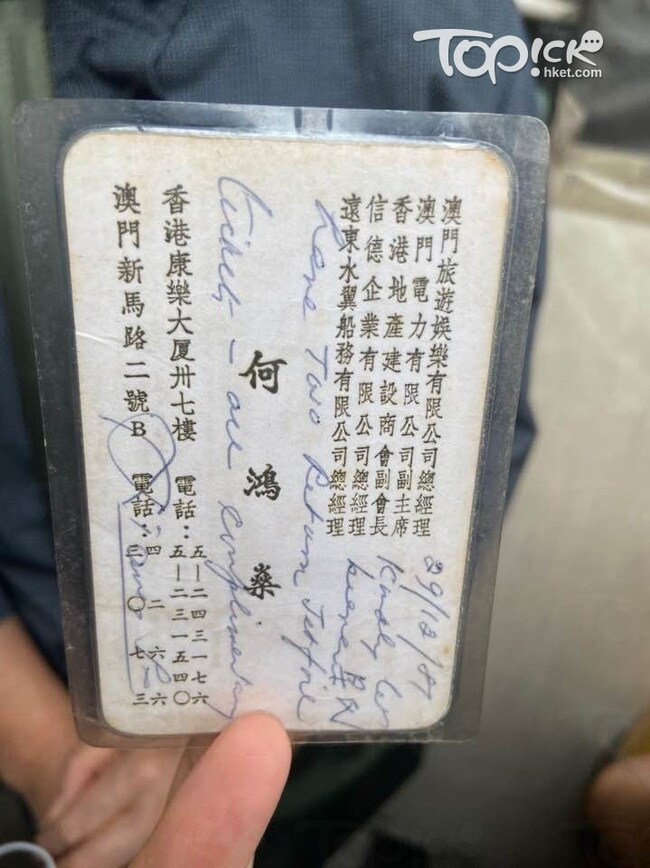 TOPICK
hket.com
澳門旅遊娛樂有限公司總經理
澳門電力有限公司副主席
香港地產建設商會副會長
信德企業有限公司總經理
遠東水翼船務有限公司總經理
何鴻燊
香港康樂大廈卅七樓 電話:五—二四三一七六
五—二三一五四〇
澳門新馬路二號B 電話:四二六六
三〇七三
29/12/87
Kindly let
bearer
have two return Jetfoil
tickets – all complimentary